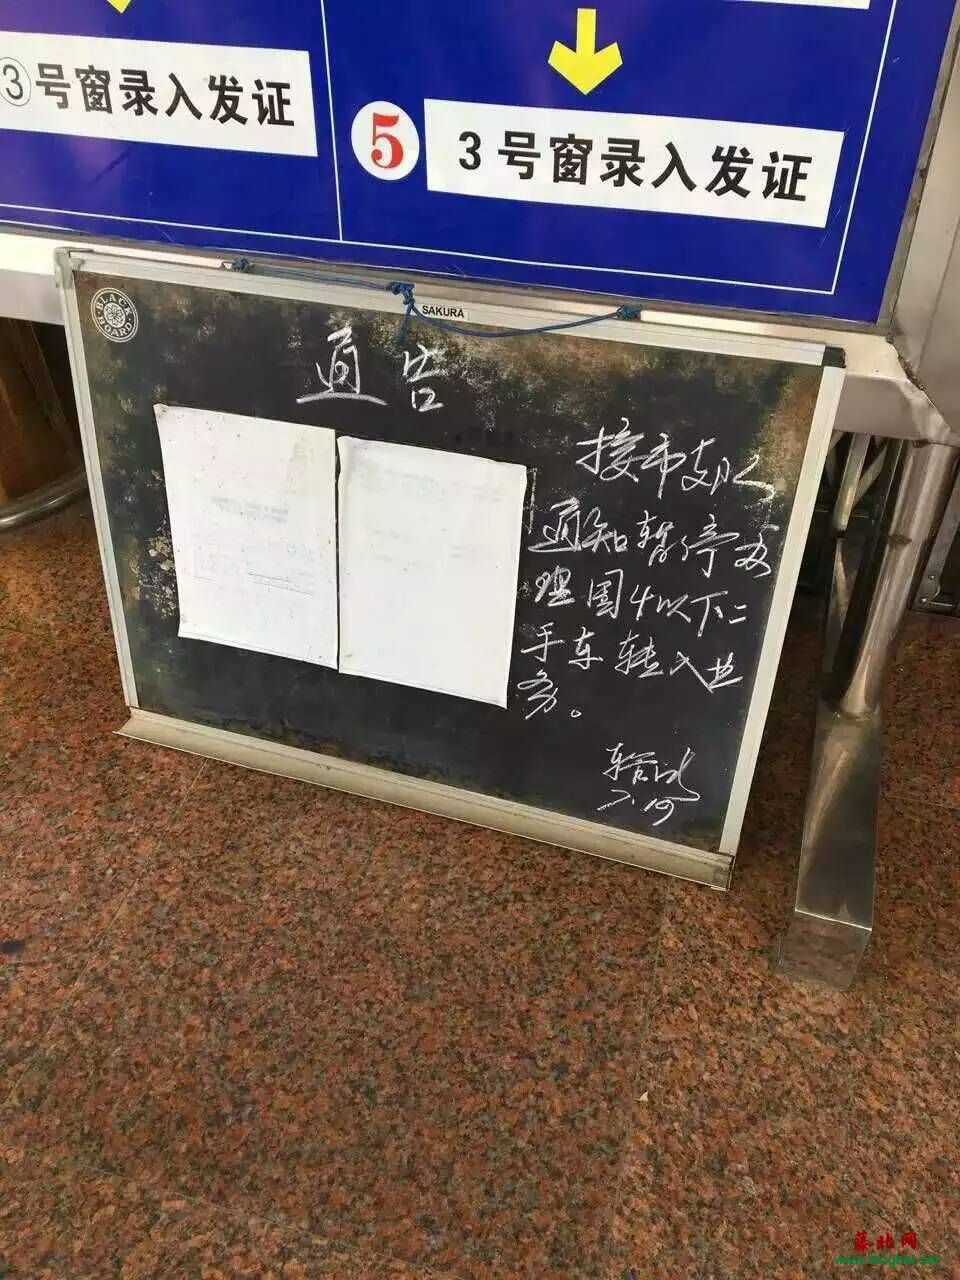 ③号窗录入发证
5 3号窗录入发证
BLACK BOARD
SAKURA
通告
接市支队
通知暂停办
理国4以下二
手车转入业
务。
藤北网